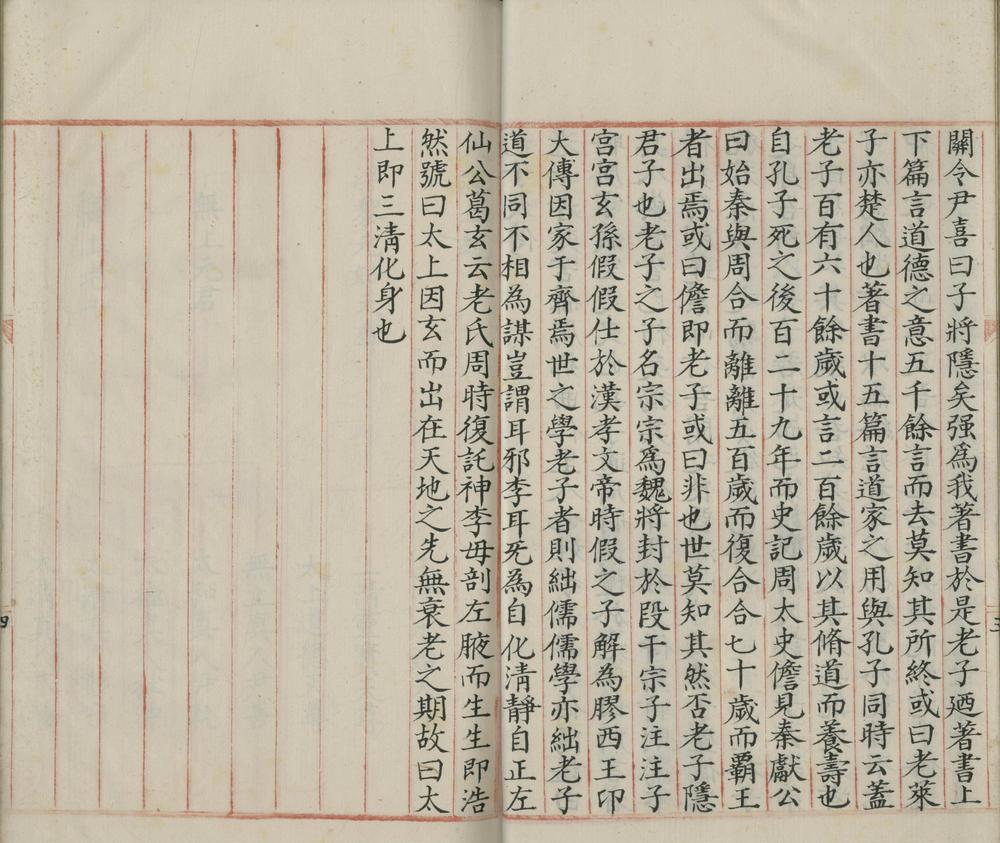 關令尹喜曰子將隱矣强爲我著書於是老子廼著書上
下篇言道德之意五千餘言而去莫知其所終或曰老萊
子亦楚人也著書十五篇言道家之用與孔子同時云蓋
老子百有六十餘歲或言二百餘歲以其脩道而養壽也
自孔子死之後百二十九年而史記周太史儋見秦獻公
曰始秦與周合而離離五百歲而復合合七十歲而霸王
者出焉或曰儋即老子或曰非也世莫知其然否老子隱
君子也老子之子名宗宗爲魏將封於段干宗子注注子
宮宮玄孫假假仕於漢孝文帝時假之子解為膠西王卬
大傅因家于齊焉世之學老子者則絀儒儒學亦絀老子
道不同不相為謀豈謂耳邪李耳死為自化淸靜自正左
仙公葛玄云老氏周時復託神李母剖左腋而生生即浩
然號曰太上因玄而出在天地之先無衰老之期故曰太
上即三淸化身也
三
四